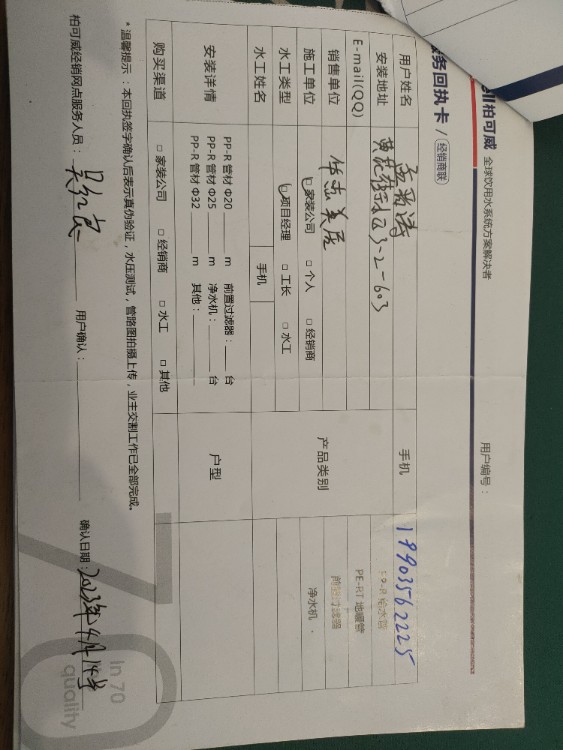 柏可威 全球饮用水系统方案解决者
务回执卡 / 经销商联
用户编号：
用户姓名 手机 19903562225
安装地址 3-2-603
E-mail(QQ)
产品类别
PP-R 给水管
PE-RT 地暖管
前置过滤器
净水机
销售单位 华忠美居
施工单位 □家装公司 □个人 □经销商
水工类型 □项目经理 □工长 □水工
水工姓名 手机
安装详情
PP-R 管材 Φ20 m 前置过滤器： 台
PP-R 管材 Φ25 m 净水机： 台
PP-R 管材 Φ32 m 其他：
户型
购买渠道 □家装公司 □经销商 □水工 □其他
*温馨提示：本回执签字确认后表示真伪验证，水压测试，管路图拍摄上传，业主交割工作已全部完成。
柏可威经销网点服务人员： 用户确认： 确认日期：2023年4月14号
In 70
quality